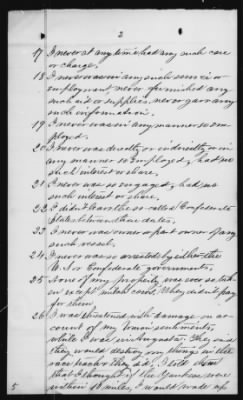 2
17 I never at any time had any such care
or charge.
18 I never was in any such service or
employment never furnished any
such aid or supplies, never gave any
such information.
19 I never was in any manner so em-
ployed.
20 I never was directly or indirectly in
any manner so employed, had no
such interest or share.
21 I never was so engaged, had no
such interest or share.
22 I didn't leave the so-called Confederate
States between these dates.
23 I never was owner or part owner of any
such vessel.
24 I never was so arrested by either the
U.S. or Confederate governments,
25 None of my property was ever so tak-
en except mules & corn. They didn't pay
for them.
26 I was threatened with damage on ac-
count of my Union sentiments,
while I was in Augusta. They said
they would destroy my things in the
race they did, I told them
that I thought if the Yankees were
within 10 miles, I would make up
5